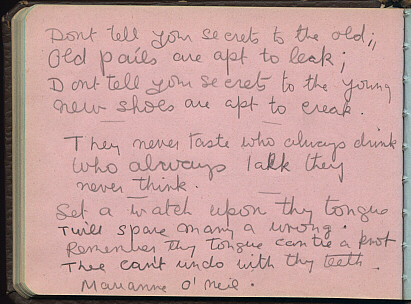 Dont tell your secrets to the old;,
Old pails are apt to leak;
Dont tell your secrets to the young
new shoes are apt to creak.
They never taste who always drink
who always talk they
never think.
Set a watch upon thy tongue
Twill spare many a wrong.
Remember thy tongue can tie a knot
Thee can't undo with thy teeth.
Marianne O'Neil.